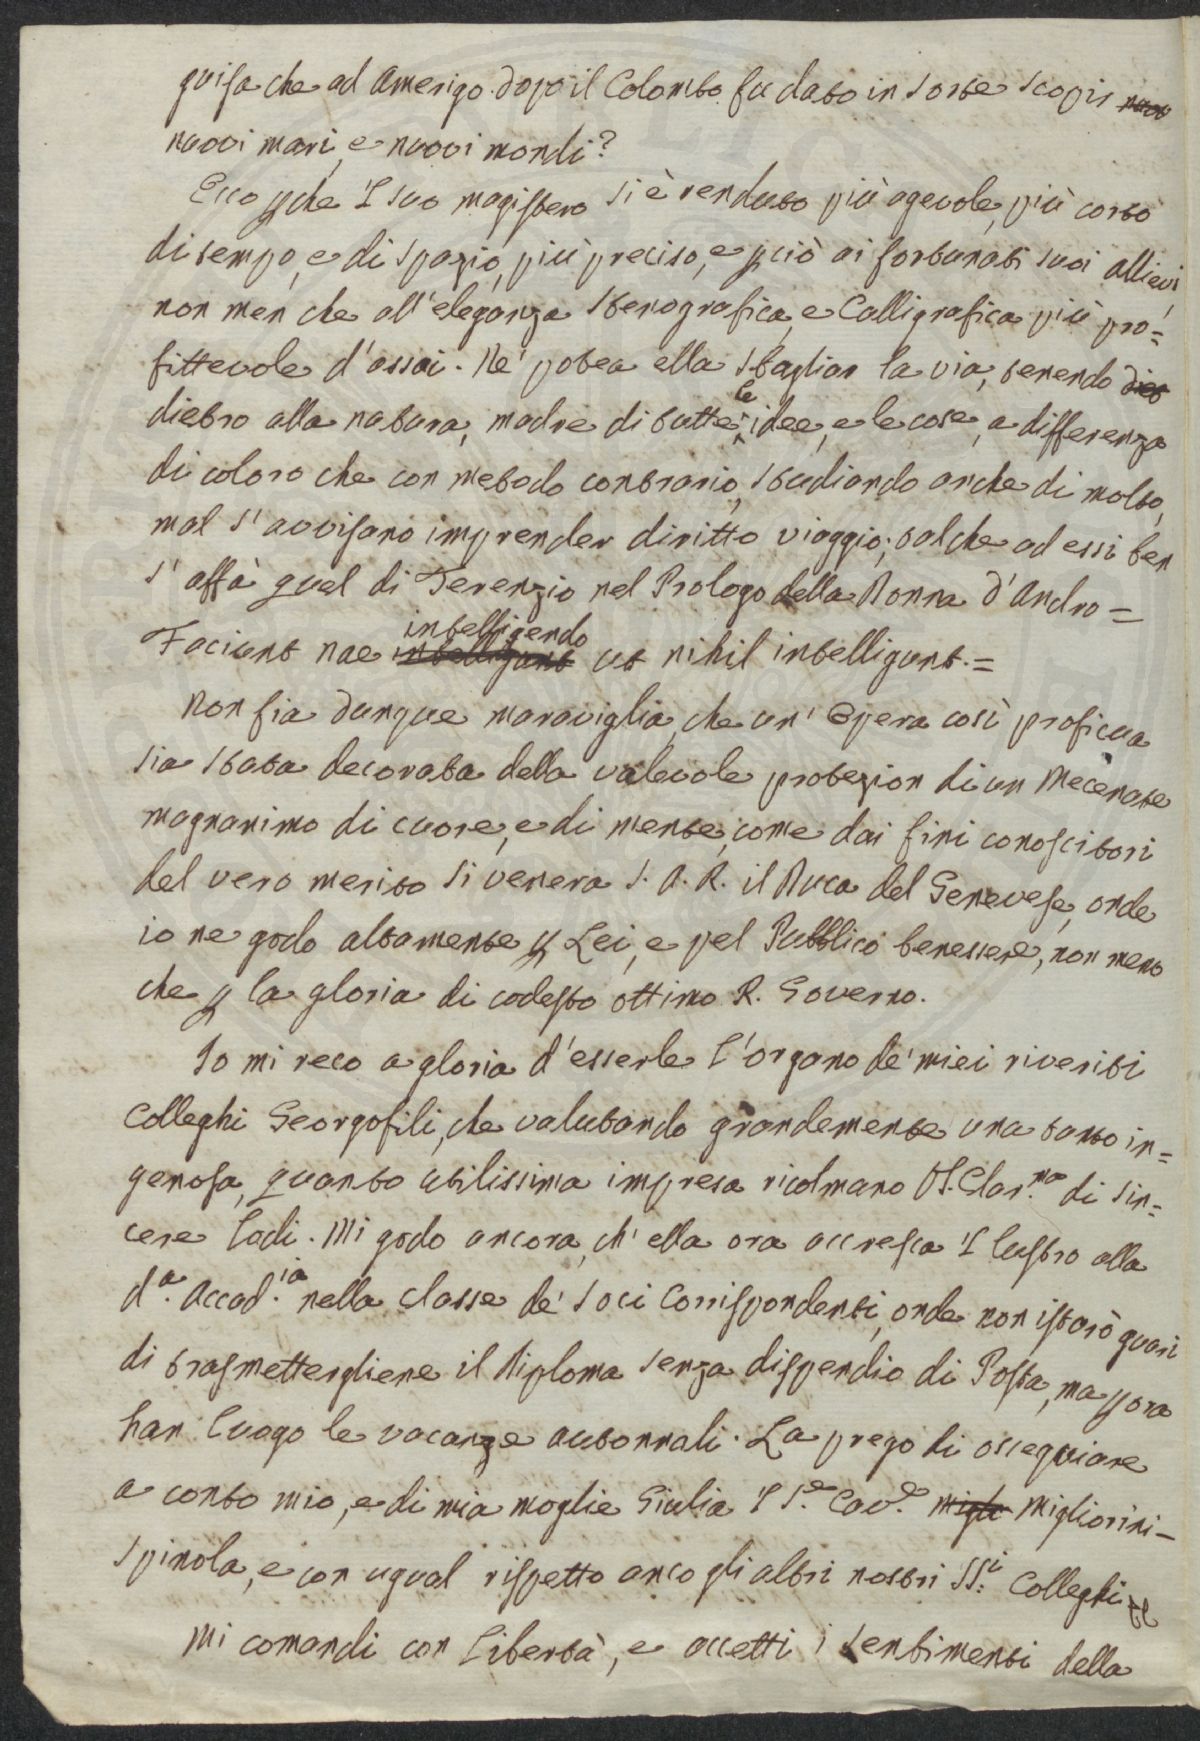 guisa che ad Amerigo dopo il Colombo fu dato in sorte scopir nuov
nuovi mari, e nuovi mondi?
Ecco pche 'l suo magistero si è renduto più agevole, più corto
di tempo, e di spazio, più preciso, e pciò ai fortunati suoi allievi,
non men che all'eleganza Stenografica, e Calligrafica più pro=
fittevole d'assai. Ne' potea ella sbagliar la via, tenendo diet
dietro alla natura, madre di tutte le idee, e le cose, a differenza
di coloro che con metodo contrario, studiando anche di molto,
mal s'avvisano imprender diritto viaggio; talche ad essi ben
s'affà quel di Terenzio nel Prologo della Donna d'Andro=
intelligendo
Faciunt nae intelligunt ut nihil intelligant.=
Non fia dunque maraviglia, che un' Opera così proficua
sia stata decorata della valevole protezion di un Mecenate
magnanimo di cuore, e di mente, come dai fini conoscitori
del vero merito si venera S. A. R. il Duca del Genevese, onde
io ne godo altamente p Lei, e pel Pubblico benessere, non meno
che p la gloria di codesto ottimo R. Governo.
Io mi reco a gloria d'esserle l'organo de' miei riveriti
Colleghi Georgofili, che valutando grandemente una tanto in=
genosa, quanto utilissima impresa ricolmano VS. Clar.ma di sin=
cere lodi. Mi godo ancora, ch' ella ora accresca 'l lustro alla
d.a Accad.ia nella classe de' Soci Corrispondenti, onde non istarò guari
di trasmettergliene il Diploma senza dispendio di Posta, ma p ora
han luogo le vacanze autonnali. La prego di ossequiare
a conto mio, e di mia moglie Giulia 'l S.e Cav.e Migli Migliorini-
Spinola, e con ugual rispetto anco gli altri nostri SS.i Colleghi
Mi comandi con libertà, e accetti i sentimenti della